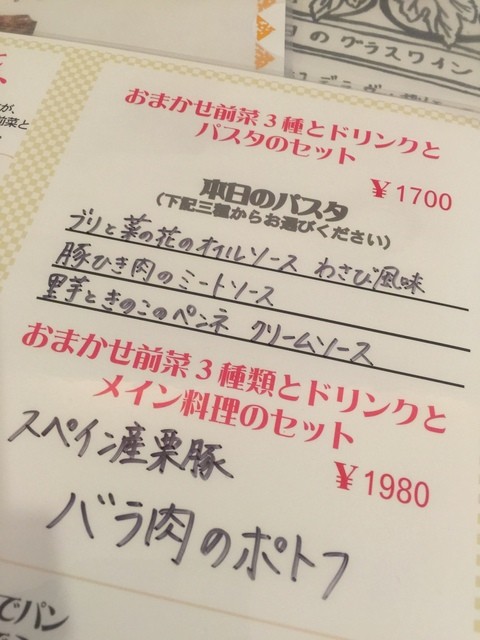 日のグラスワイン
が、
前菜と
おまかせ前菜3種とドリンクと
パスタのセット
¥1700
本日のパスタ
(下記三種からお選びください)
ブリと菜の花のオイルソース わさび風味
豚ひき肉のミートソース
里芋ときのこのペンネ クリームソース
おまかせ前菜3種類とドリンクと
メイン料理のセット
¥1980
スペイン産栗豚
バラ肉のポトフ
でパン